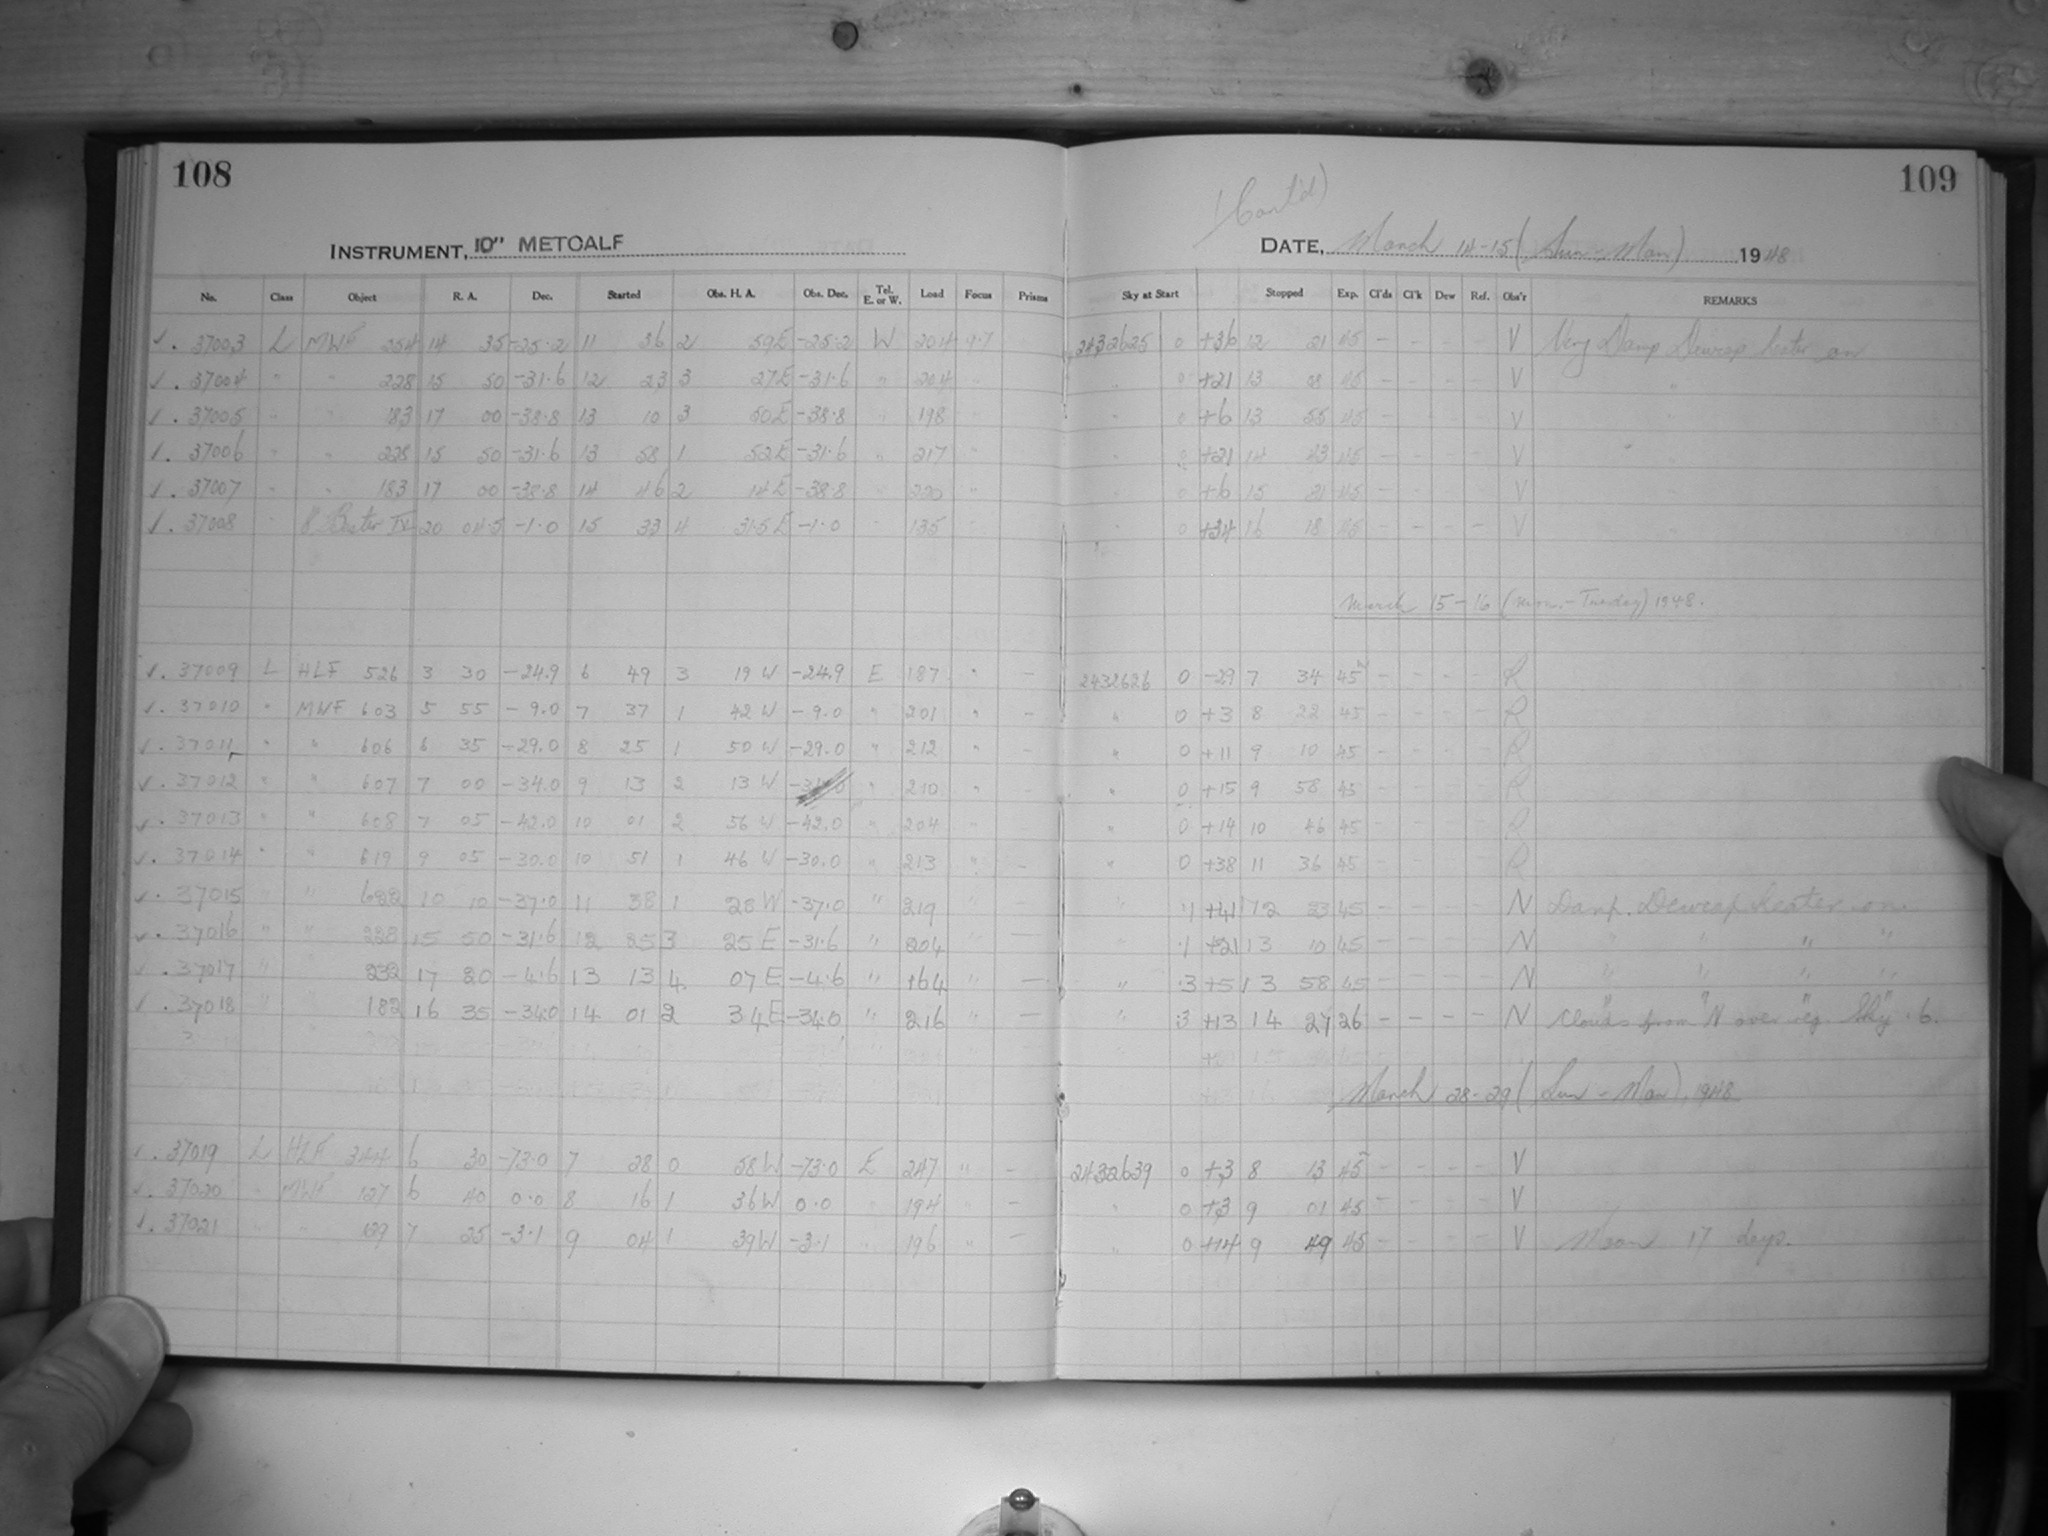 108
109
(Cont'd)
INSTRUMENT, 10" METCALF
DATE, March 14-15 (Sun - Mon) 1948
No. Class Object R. A. Dec. Started Obs. H. A. Obs. Dec. Tel. E. or W. Load Focus Prisms Sky at Start Stopped Exp. Cl'ds Cl'k Dew Ref. Obs'r REMARKS
√. 37003 L MWF 254 14 35 -25.2 11 36 2 59E -25.2 W 204 9.7 2432625 0 +36 12 21 45 - - - - V Very Damp Dewcap heater on
√. 37004 " " 228 15 50 -31.6 12 23 3 27E -31.6 " 204 " 0 +21 13 08 45 - - - - V "
√. 37005 " " 183 17 00 -38.8 13 10 3 50E -38.8 " 198 " 0 +6 13 55 45 - - - - V "
√. 37006 " " 228 15 50 -31.6 13 58 1 52E -31.6 " 217 " " +21 14 43 45 - - - - V "
√. 37007 " " 183 17 00 -38.8 14 46 2 14E -38.8 " 220 " " 0 +6 15 31 45 - - - - V "
√. 37008 " 20 04.5 -1.0 15 33 4 31.5E -1.0 " 135 " 0 +34 16 18 45 - - - - V "
March 15-16 (Mon. - Tuesday) 1948.
√. 37009 L HLF 526 3 30 -24.9 6 49 3 19 W -24.9 E 187 " - 2432626 0 -29 7 34 45 - - - - R
√. 37010 " MWF 603 5 55 -9.0 7 37 1 42 W -9.0 " 201 " - " 0 +3 8 22 45 - - - - R
√. 37011 " " 606 6 35 -29.0 8 25 1 50 W -29.0 " 212 " - " 0 +11 9 10 45 - - - - R
√. 37012 " " 607 7 00 -34.0 9 13 2 13 W " 210 " - " 0 +15 9 58 45 - - - - R
√. 37013 " " 608 7 05 -42.0 10 01 2 56 W -42.0 " 204 " - " 0 +14 10 46 45 - - - - R
√. 37014 " " 619 9 05 -30.0 10 51 1 46 W -30.0 " 213 " - " 0 +38 11 36 45 - - - - R
√. 37015 " " 622 10 10 -37.0 11 38 1 28 W -37.0 " 219 " - " .1 +41 12 23 45 - - - - N Damp. Dewcap heater on
√. 37016 " " 228 15 50 -31.6 12 25 3 25 E -31.6 " 204 " - " .1 +21 13 10 45 - - - - N " " " "
√. 37017 " " 232 17 20 -4.6 13 13 4 07 E -4.6 " 164 " - " .3 +5 13 58 45 - - - - N " " " "
√. 37018 " " 182 16 35 -34.0 14 01 2 34E -34.0 " 216 " - " .3 +13 14 27 26 - - - - N Clouds from N over reg. Sky .6.
March 28-29 (Sun - Mon), 1948
√. 37019 L HLF 344 6 30 -73.0 7 28 0 58W -73.0 E 247 " - 2432639 0 +3 8 13 45 - - - - V
√. 37020 " MWF 127 6 40 0.0 8 16 1 36W 0.0 " 194 " - " 0 +3 9 01 45 - - - - V
√. 37021 " " 129 7 25 -3.1 9 04 1 39W -3.1 " 196 " - " 0 +14 9 49 45 - - - - V Moon 17 days.